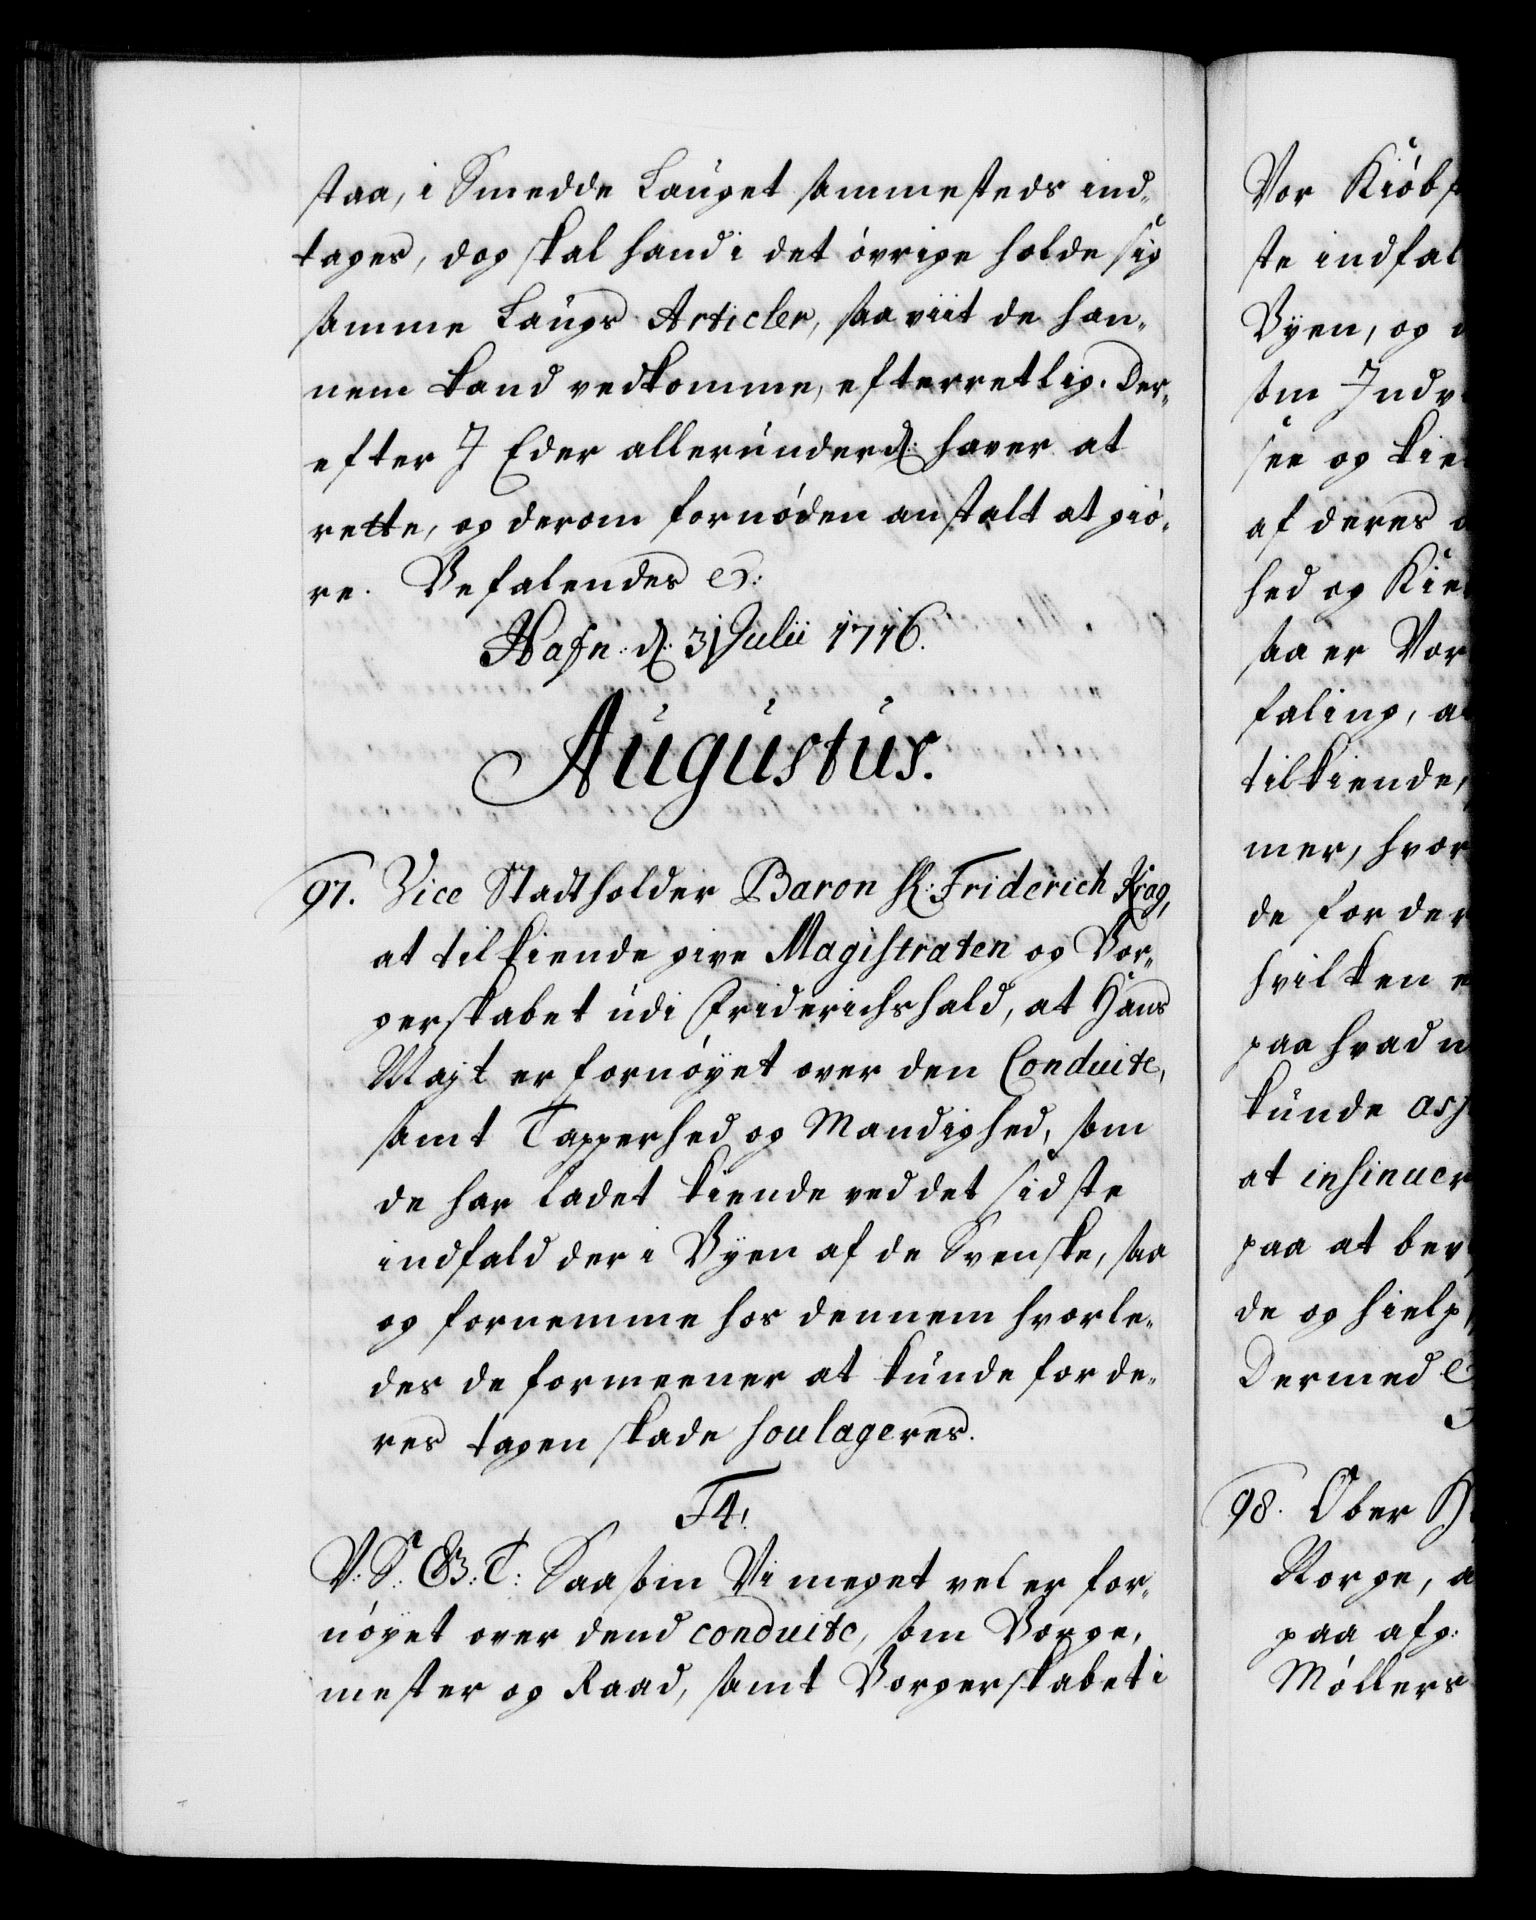 staa, i Smedde Lauget sammesteds ind-
tages, dog skal hand i det øvrige holde sig
samme Laugs Articler, saa viit de han-
nem kand vedkomme, efterretlig. Der-
efter I Eder allerunderd: haver at
rette, og derom fornøden anstalt at giø-
re. Befalendes etc:
Hafn: d: 31 Julii 1716.
Augustus.
97. Vice Stadtholder Baron H: Friderich Krag,
at tilkiende give Magistraten og Bor-
gerskabet udi Friderichshald, at Hans
Mayt er fornøyet over den Conduite,
samt Tapperhed og Mandighed, som
de har ladet kiende ved det sidste
indfald der i Byen af de Svenske, saa
og fornemme hos dennem hvorle-
des de formeener at kunde for de-
res tagen skade soulageres.
F4.
V: S: G: T: Saasom Vi meget vel er for-
nøyet over dend conduite, som Borge-
mester og Raad, samt Borgerskabet i
Vor Kiøbs
ste indfal
Byen, og
som Indv
see og kie
af deres
hed og Kie
saa er Vor
faling, a
tilkiende
mer, hvor
de for der
hvilken
paa hvad
kunde asp
at insinuer
paa at bev
de og hielp
Dermed
98. Ober
Norge, a
paa afg:
Møllers